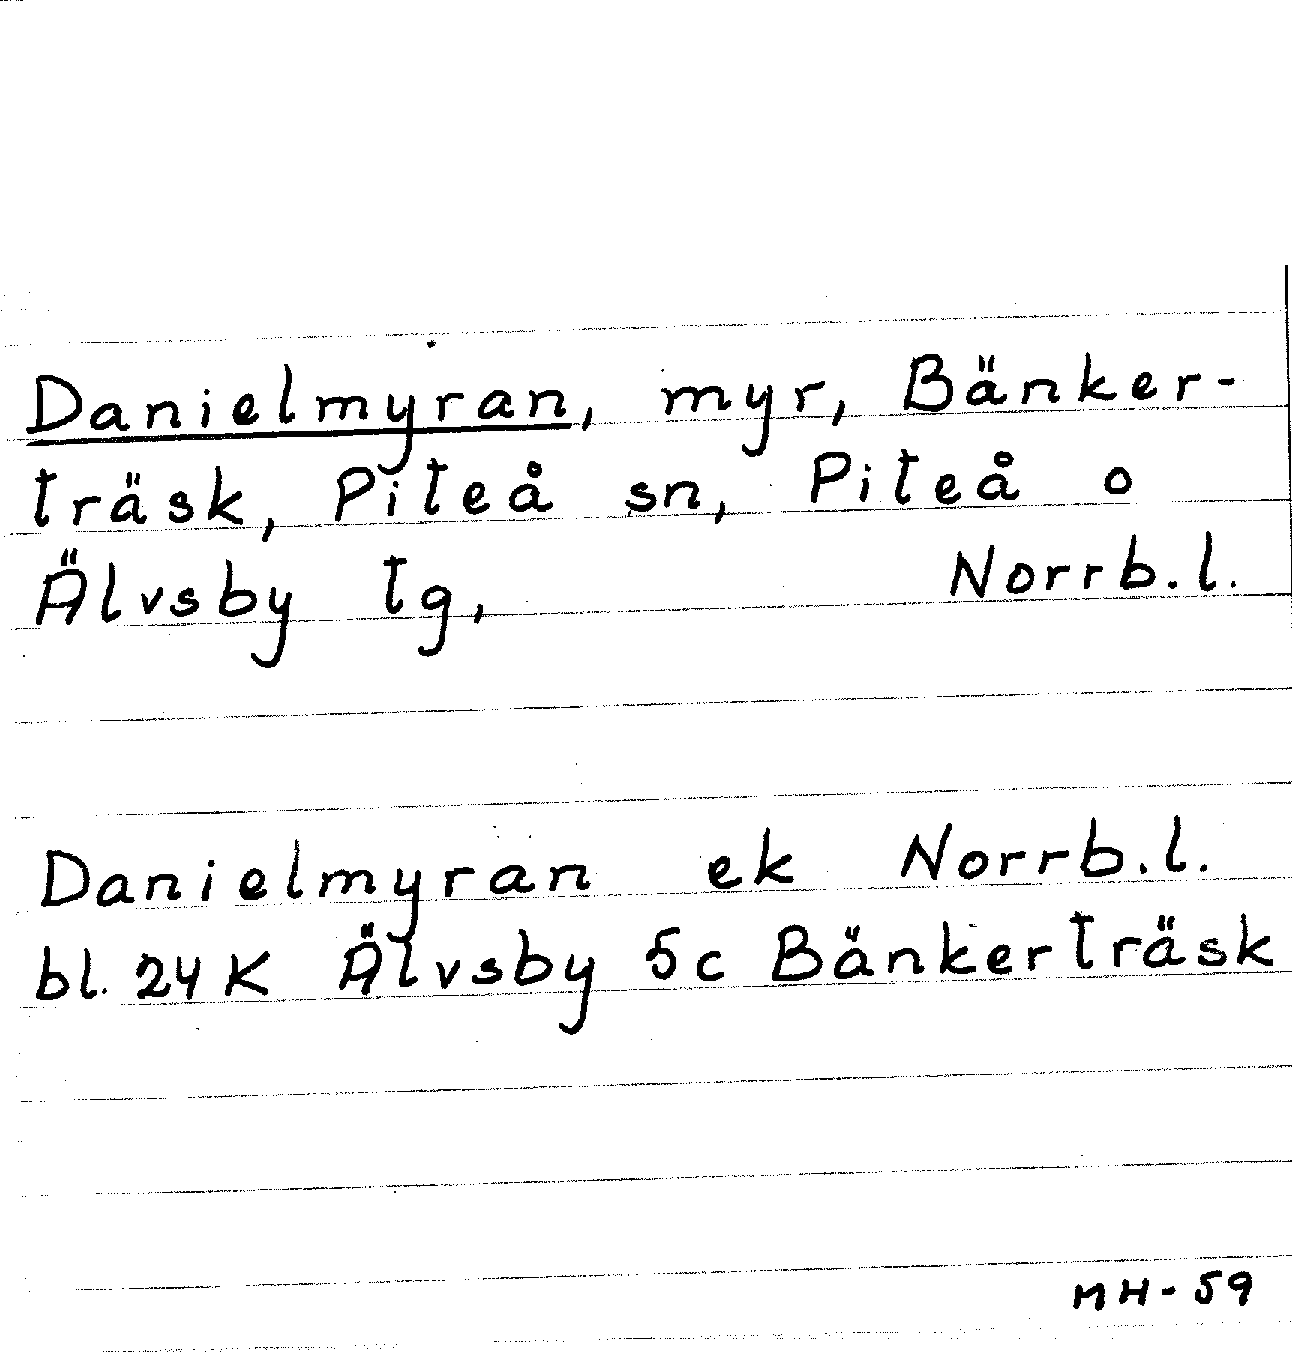 Danielmyran, myr, Bänker-
träsk, Piteå sn, Piteå o
Älvsby tg, Norrb.l.
Danielmyran ek Norrb.l.
bl. 24 K Älvsby 5c Bänkerträsk
MH-59